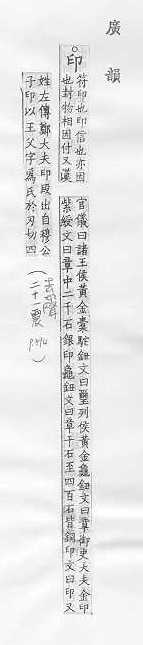 廣韻
印
符印也印信也亦因
也封物相因付又漢
官儀曰諸王侯黃金橐駝鈕文曰璽列侯黃金龜鈕文曰章御史大夫金印
紫綬文曰章中二千石銀印龜鈕文曰章千石至四百石皆銅印文曰印又
姓左傳鄭大夫印段出自穆公
子印以王父字爲氏於刃切四
去聲
(二十一震
)